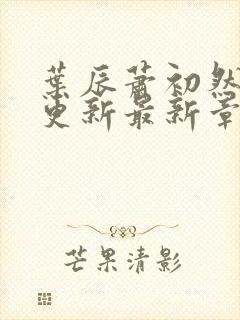 葉辰蕭初然
更新最新章
芒果清影